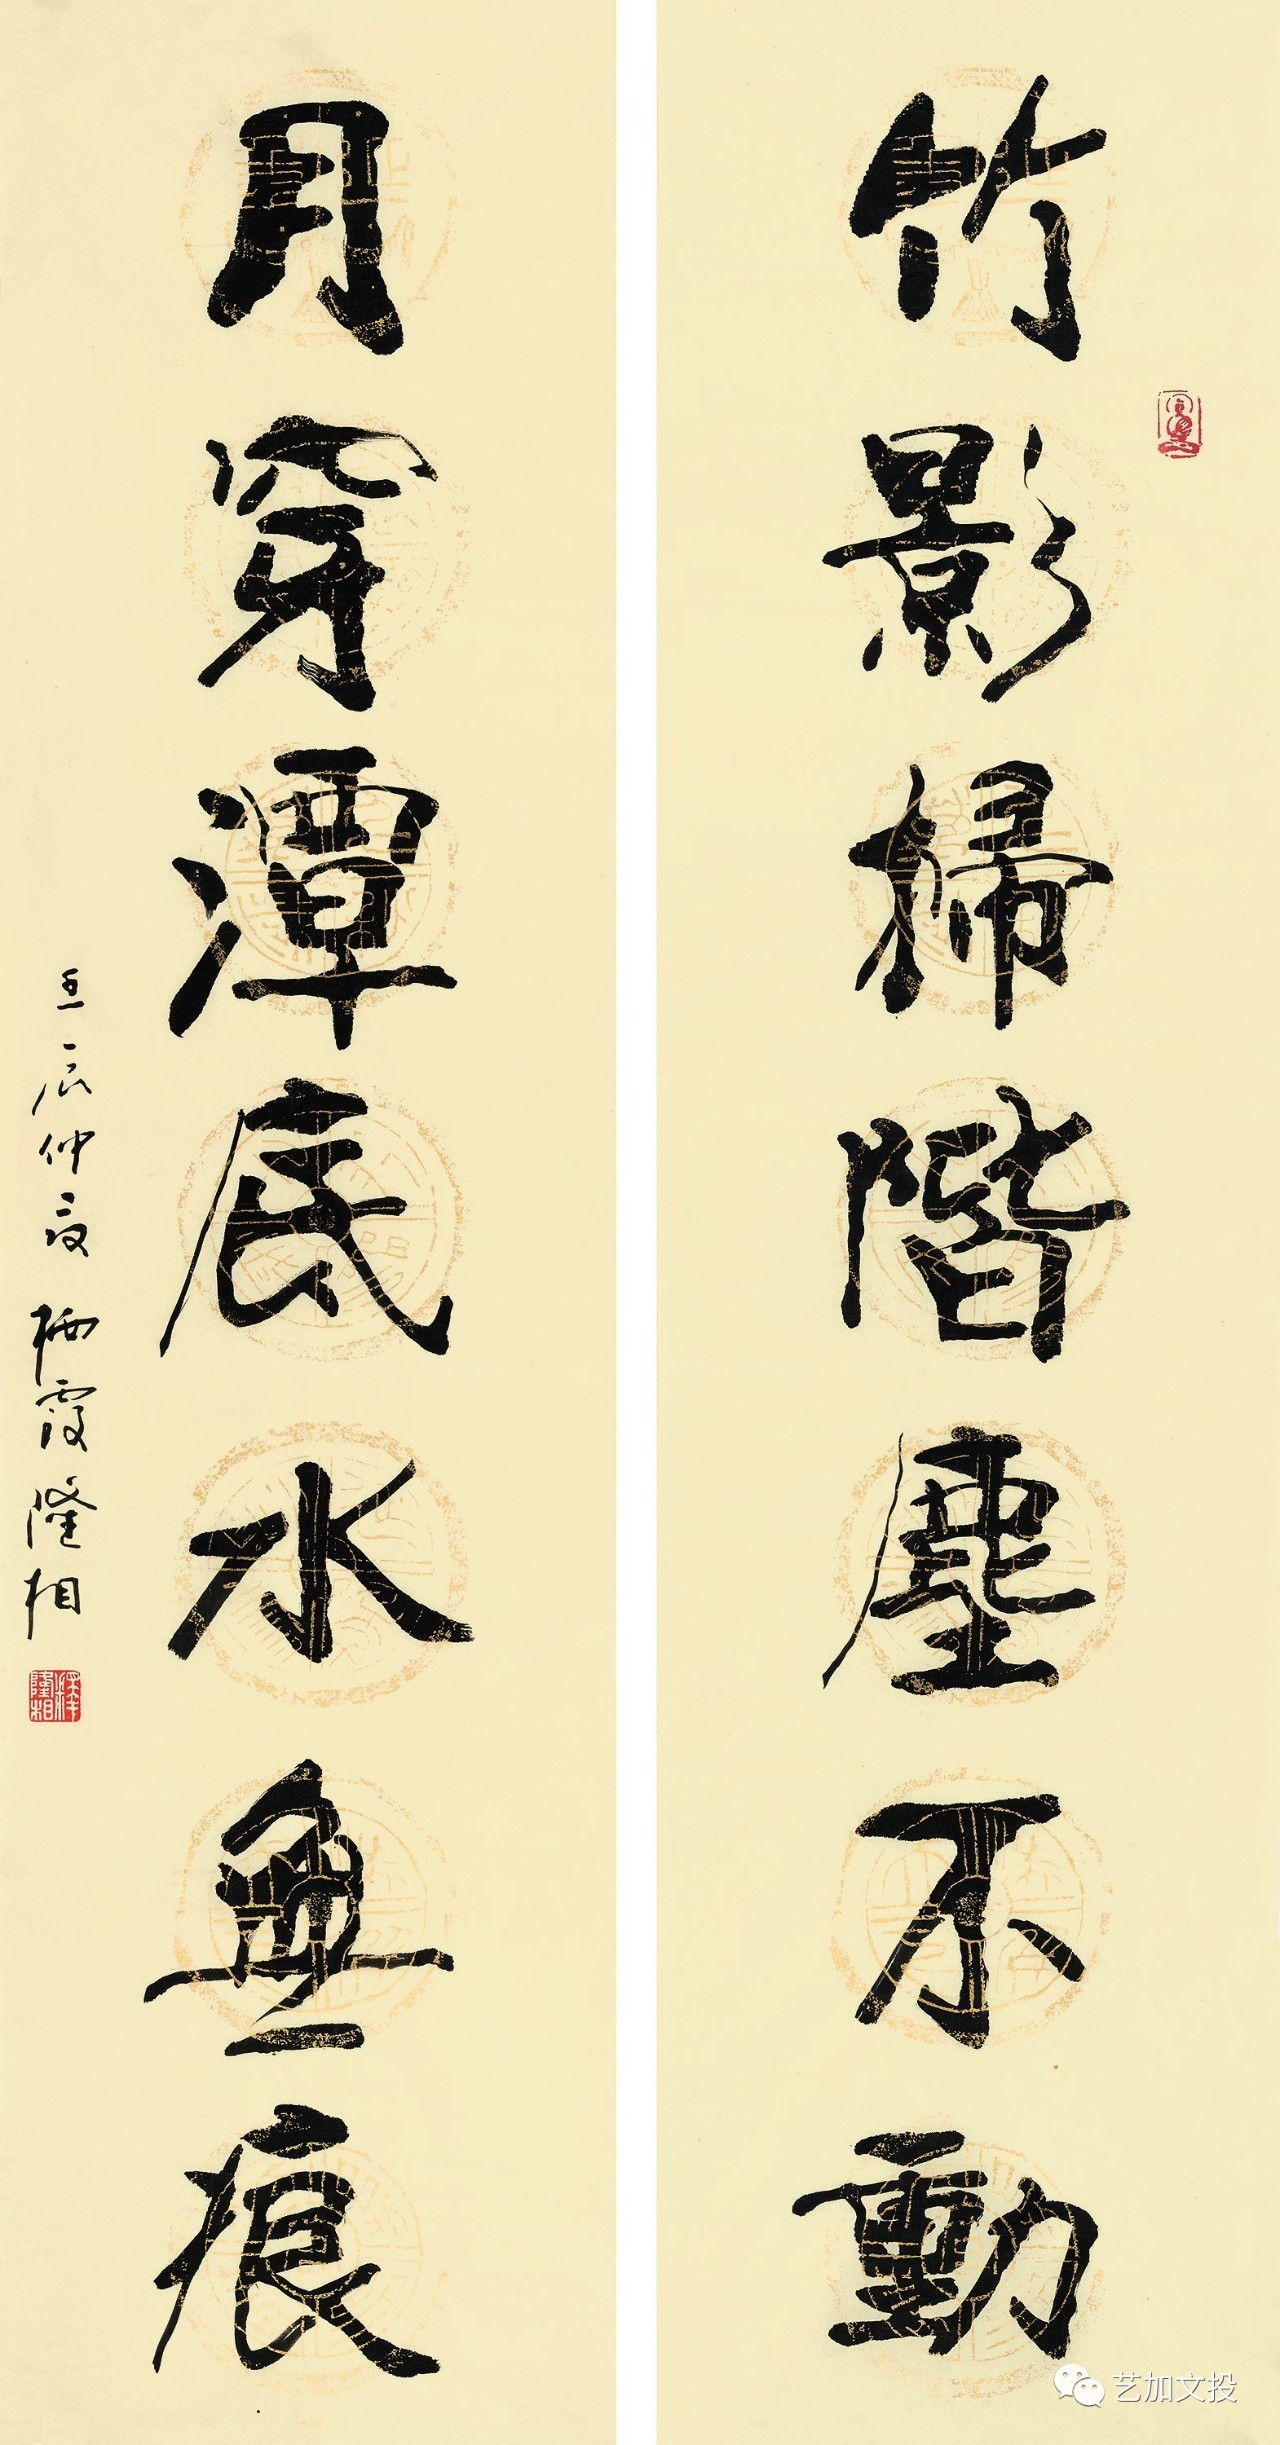 竹影掃階塵不動
月穿潭底水無痕
壬辰仲夏 栖霞隆相
釋隆相
艺加文投